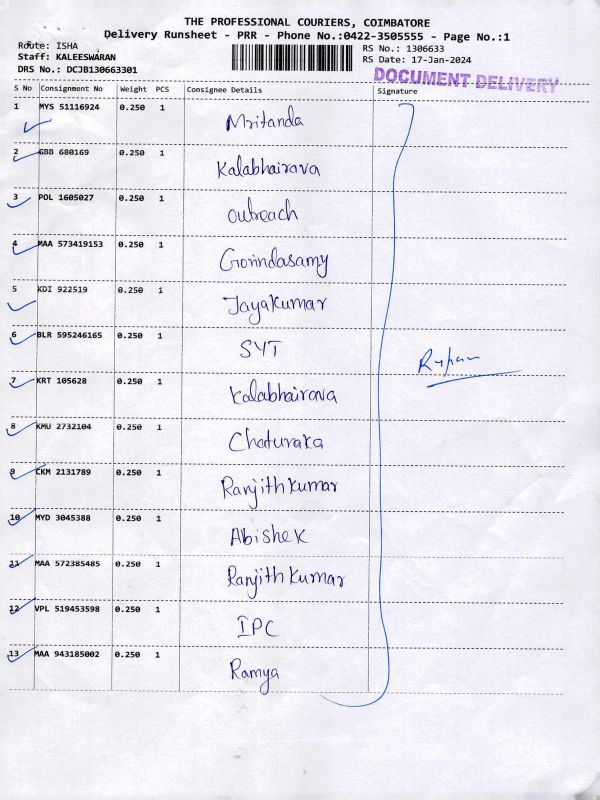 THE PROFESSIONAL COURIERS, COIMBATORE
Delivery Runsheet - PRR - Phone No.:0422-3505555 - Page No.:1
Route: ISHA RS No.: 1306633
Staff: KALEESWARAN RS Date: 17-Jan-2024
DRS No.: DCJB130663301 DOCUMENT DELIVERY
S No Consignment No Weight PCS Consignee Details Signature
1 MYS 51116924 0.250 1 Mritanda
2 GBB 680169 0.250 1 Kalabhairava
3 POL 1605027 0.250 1 outreach
4 MAA 573419153 0.250 1 Govindasamy
5 KDI 922519 0.250 1 Jayakumar
6 BLR 595246165 0.250 1 SYT
7 KRT 105628 0.250 1 Kalabhairava
8 KMU 2732104 0.250 1 Chaturaka
9 CKM 2131789 0.250 1 Ranjith kumar
10 MYD 3045388 0.250 1 Abishek
11 MAA 572385485 0.250 1 Ranjith kumar
12 VPL 519453598 0.250 1 IPC
13 MAA 943185002 0.250 1 Ramya